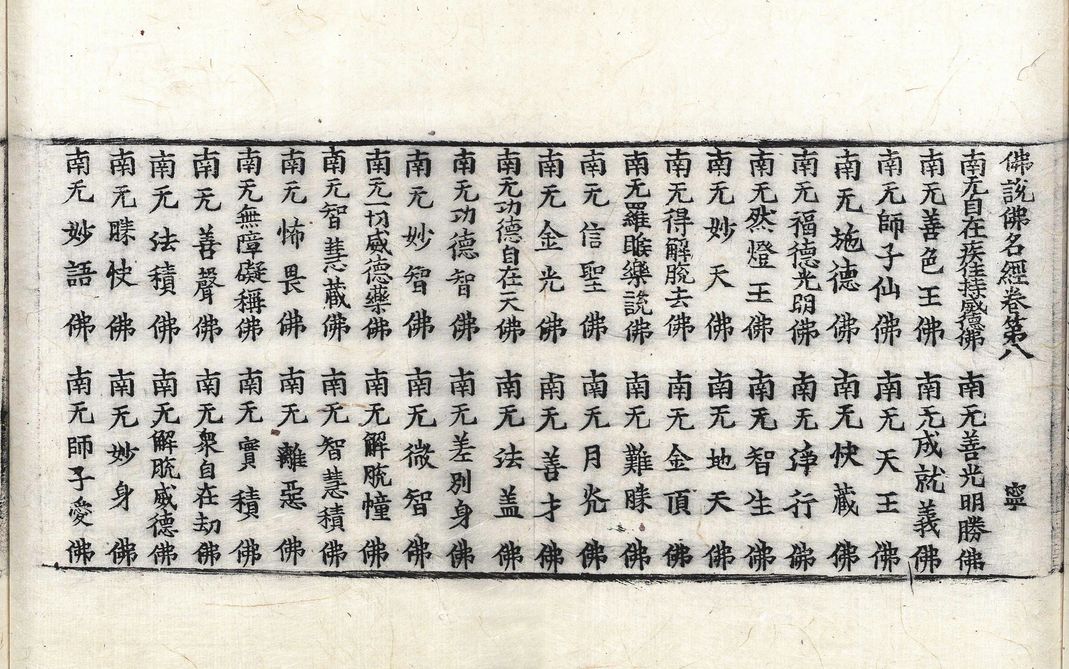 佛說佛名經卷第八 寧
南无自在疾佳持威德佛 南无善光明勝佛
南无善色王佛 南无成就義佛
南无師子仙佛 南无天王佛
南无施德佛 南无快藏佛
南无福德光明佛 南无淨行佛
南无然燈王佛 南无智生佛
南无妙天佛 南无地天佛
南无得解脫去佛 南无金頂佛
南无羅睺樂說佛 南无難勝佛
南无信聖佛 南无月光佛
南无金光佛 南无善才佛
南无功德自在天佛 南无法盖佛
南无功德智佛 南无差別身佛
南无妙智佛 南无微智佛
南无一切威德藥佛 南无解脫憧佛
南无智慧藏佛 南无智慧積佛
南无怖畏佛 南无離惡佛
南无無障礙稱佛 南无實積佛
南无善聲佛 南无衆自在劫佛
南无法積佛 南无解脫威德佛
南无勝快佛 南无妙身佛
南无妙語佛 南无師子愛佛